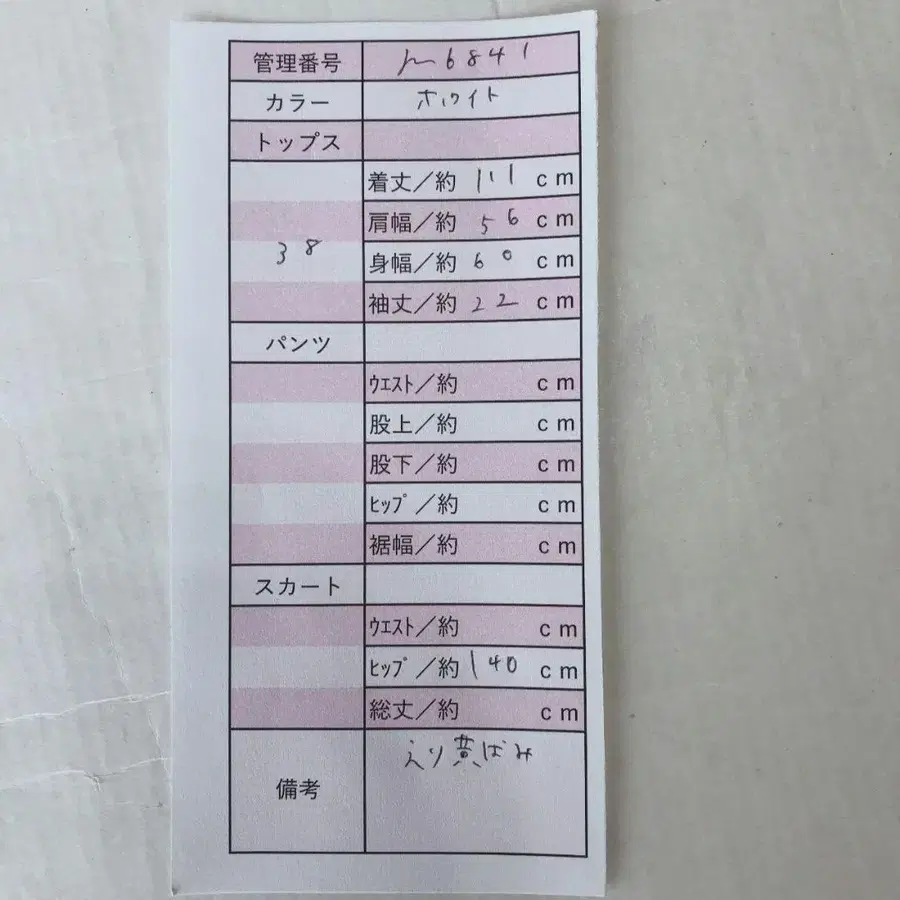 管理番号 m6841
カラー ホワイト
トップス
着丈／約 111 cm
肩幅／約 56 cm
38
身幅／約 60 cm
袖丈／約 22 cm
パンツ
ウエスト／約 cm
股上／約 cm
股下／約 cm
ヒップ／約 cm
裾幅／約 cm
スカート
ウエスト／約 cm
ヒップ／約 140 cm
総丈／約 cm
備考 えり黄ばみ